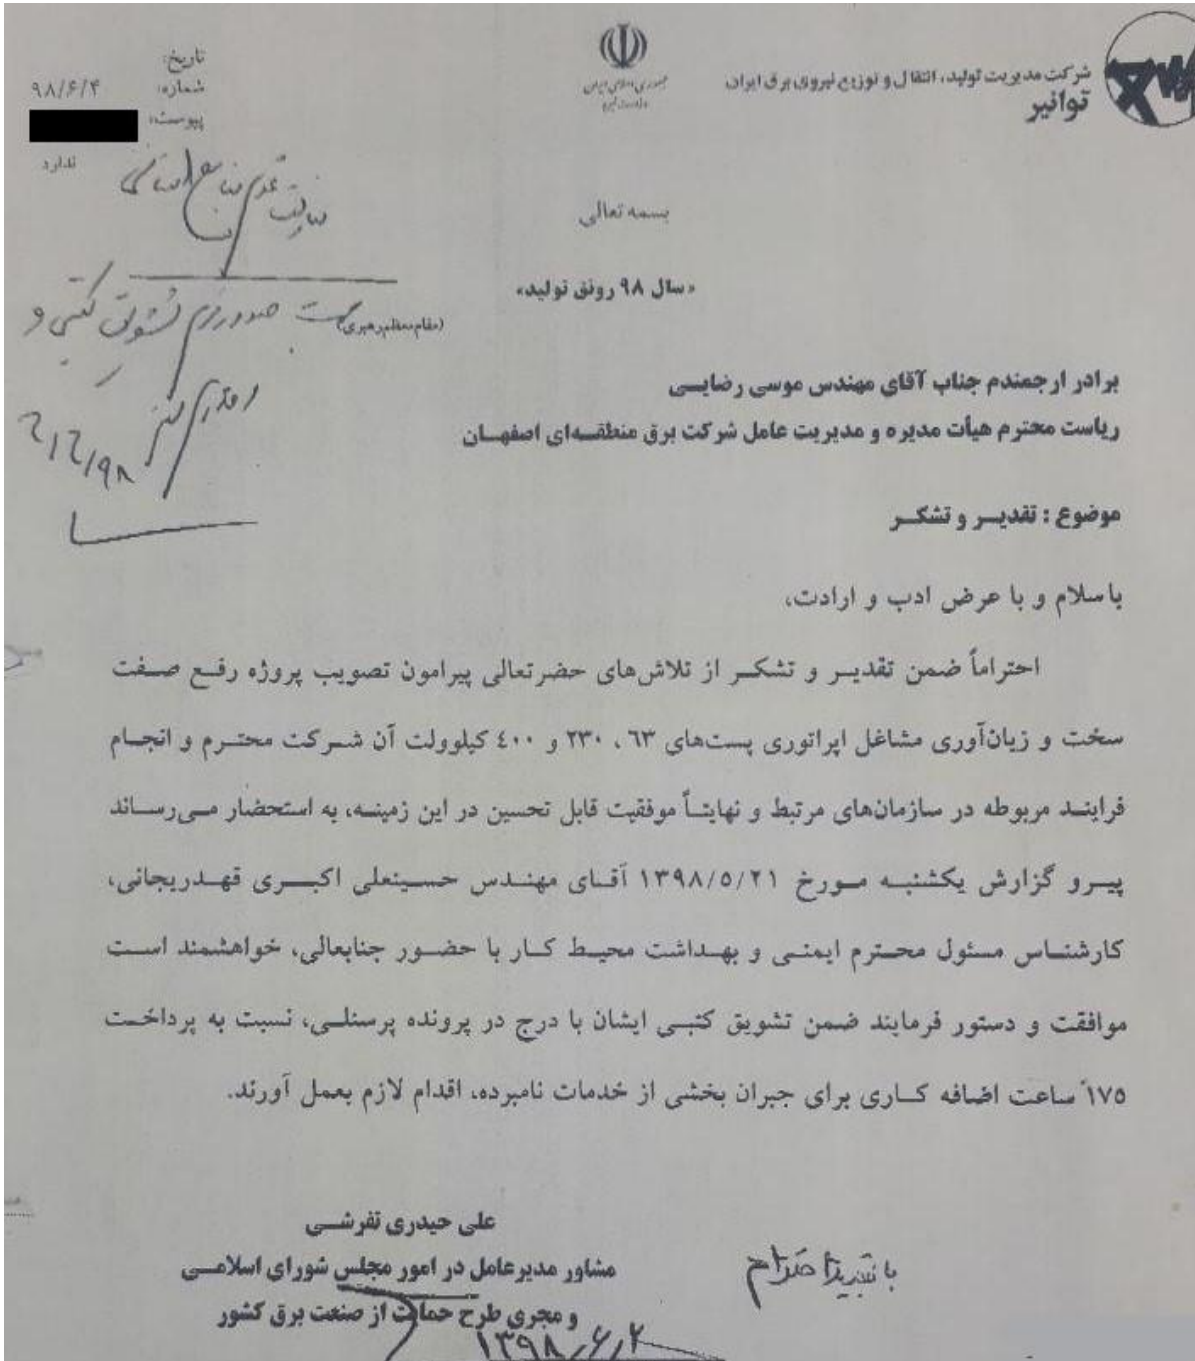 شرکت مدیریت تولید، انتقال و توزیع نیروی برق ایران
توانیر
جمهوری اسلامی ایران
وزارت نیرو
تاریخ:
شماره: ۹۸/۶/۴
پیوست:
ندارد
بسمه تعالی
«سال ۹۸ رونق تولید»
(مقام معظم رهبری)
مدیریت محترم منابع انسانی
صدور تشویق کتبی و
اقدام کنید
۹۸/۶/۶
برادر ارجمندم جناب آقای مهندس موسی رضایی
ریاست محترم هیأت مدیره و مدیریت عامل شرکت برق منطقه‌ای اصفهان
موضوع : تقدیر و تشکر
با سلام و با عرض ادب و ارادت،
احتراماً ضمن تقدیر و تشکر از تلاش‌های حضرتعالی پیرامون تصویب پروژه رفع صفت
سخت و زیان‌آوری مشاغل اپراتوری پست‌های ۶۳ ، ۲۳۰ و ۴۰۰ کیلوولت آن شرکت محترم و انجام
فرایند مربوطه در سازمان‌های مرتبط و نهایتاً موفقیت قابل تحسین در این زمینه، به استحضار می‌رساند
پیرو گزارش یکشنبه مورخ ۱۳۹۸/۵/۲۱ آقای مهندس حسینعلی اکبری قهدریجانی،
کارشناس مسئول محترم ایمنی و بهداشت محیط کار با حضور جنابعالی، خواهشمند است
موافقت و دستور فرمایند ضمن تشویق کتبی ایشان با درج در پرونده پرسنلی، نسبت به پرداخت
۱۷۵ ساعت اضافه کاری برای جبران بخشی از خدمات نامبرده، اقدام لازم بعمل آورند.
علی حیدری تفرشی
مشاور مدیرعامل در امور مجلس شورای اسلامی
و مجری طرح حمایت از صنعت برق کشور
با تجدید احترام
۱۳۹۸/۶/۲